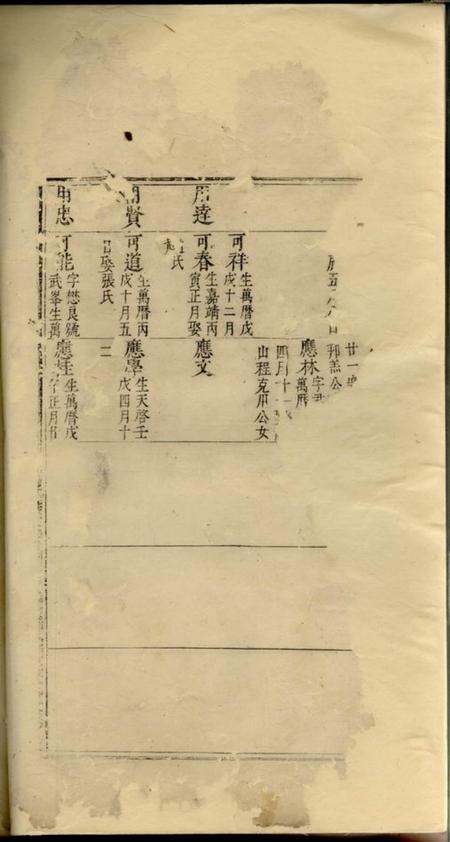 達
賢
忠
可祥
生萬曆戊
戌十二月
可春
生嘉靖丙
寅正月娶
氏
可道
生萬曆丙
戌十月五
日娶張氏
可能
字懋良號
武峯生萬
廿一
邦 公
應林
字
萬曆
四月十
山程克用公女
應文
應學
生天啓壬
戌四月十
二
應
生萬曆戊
正月廿